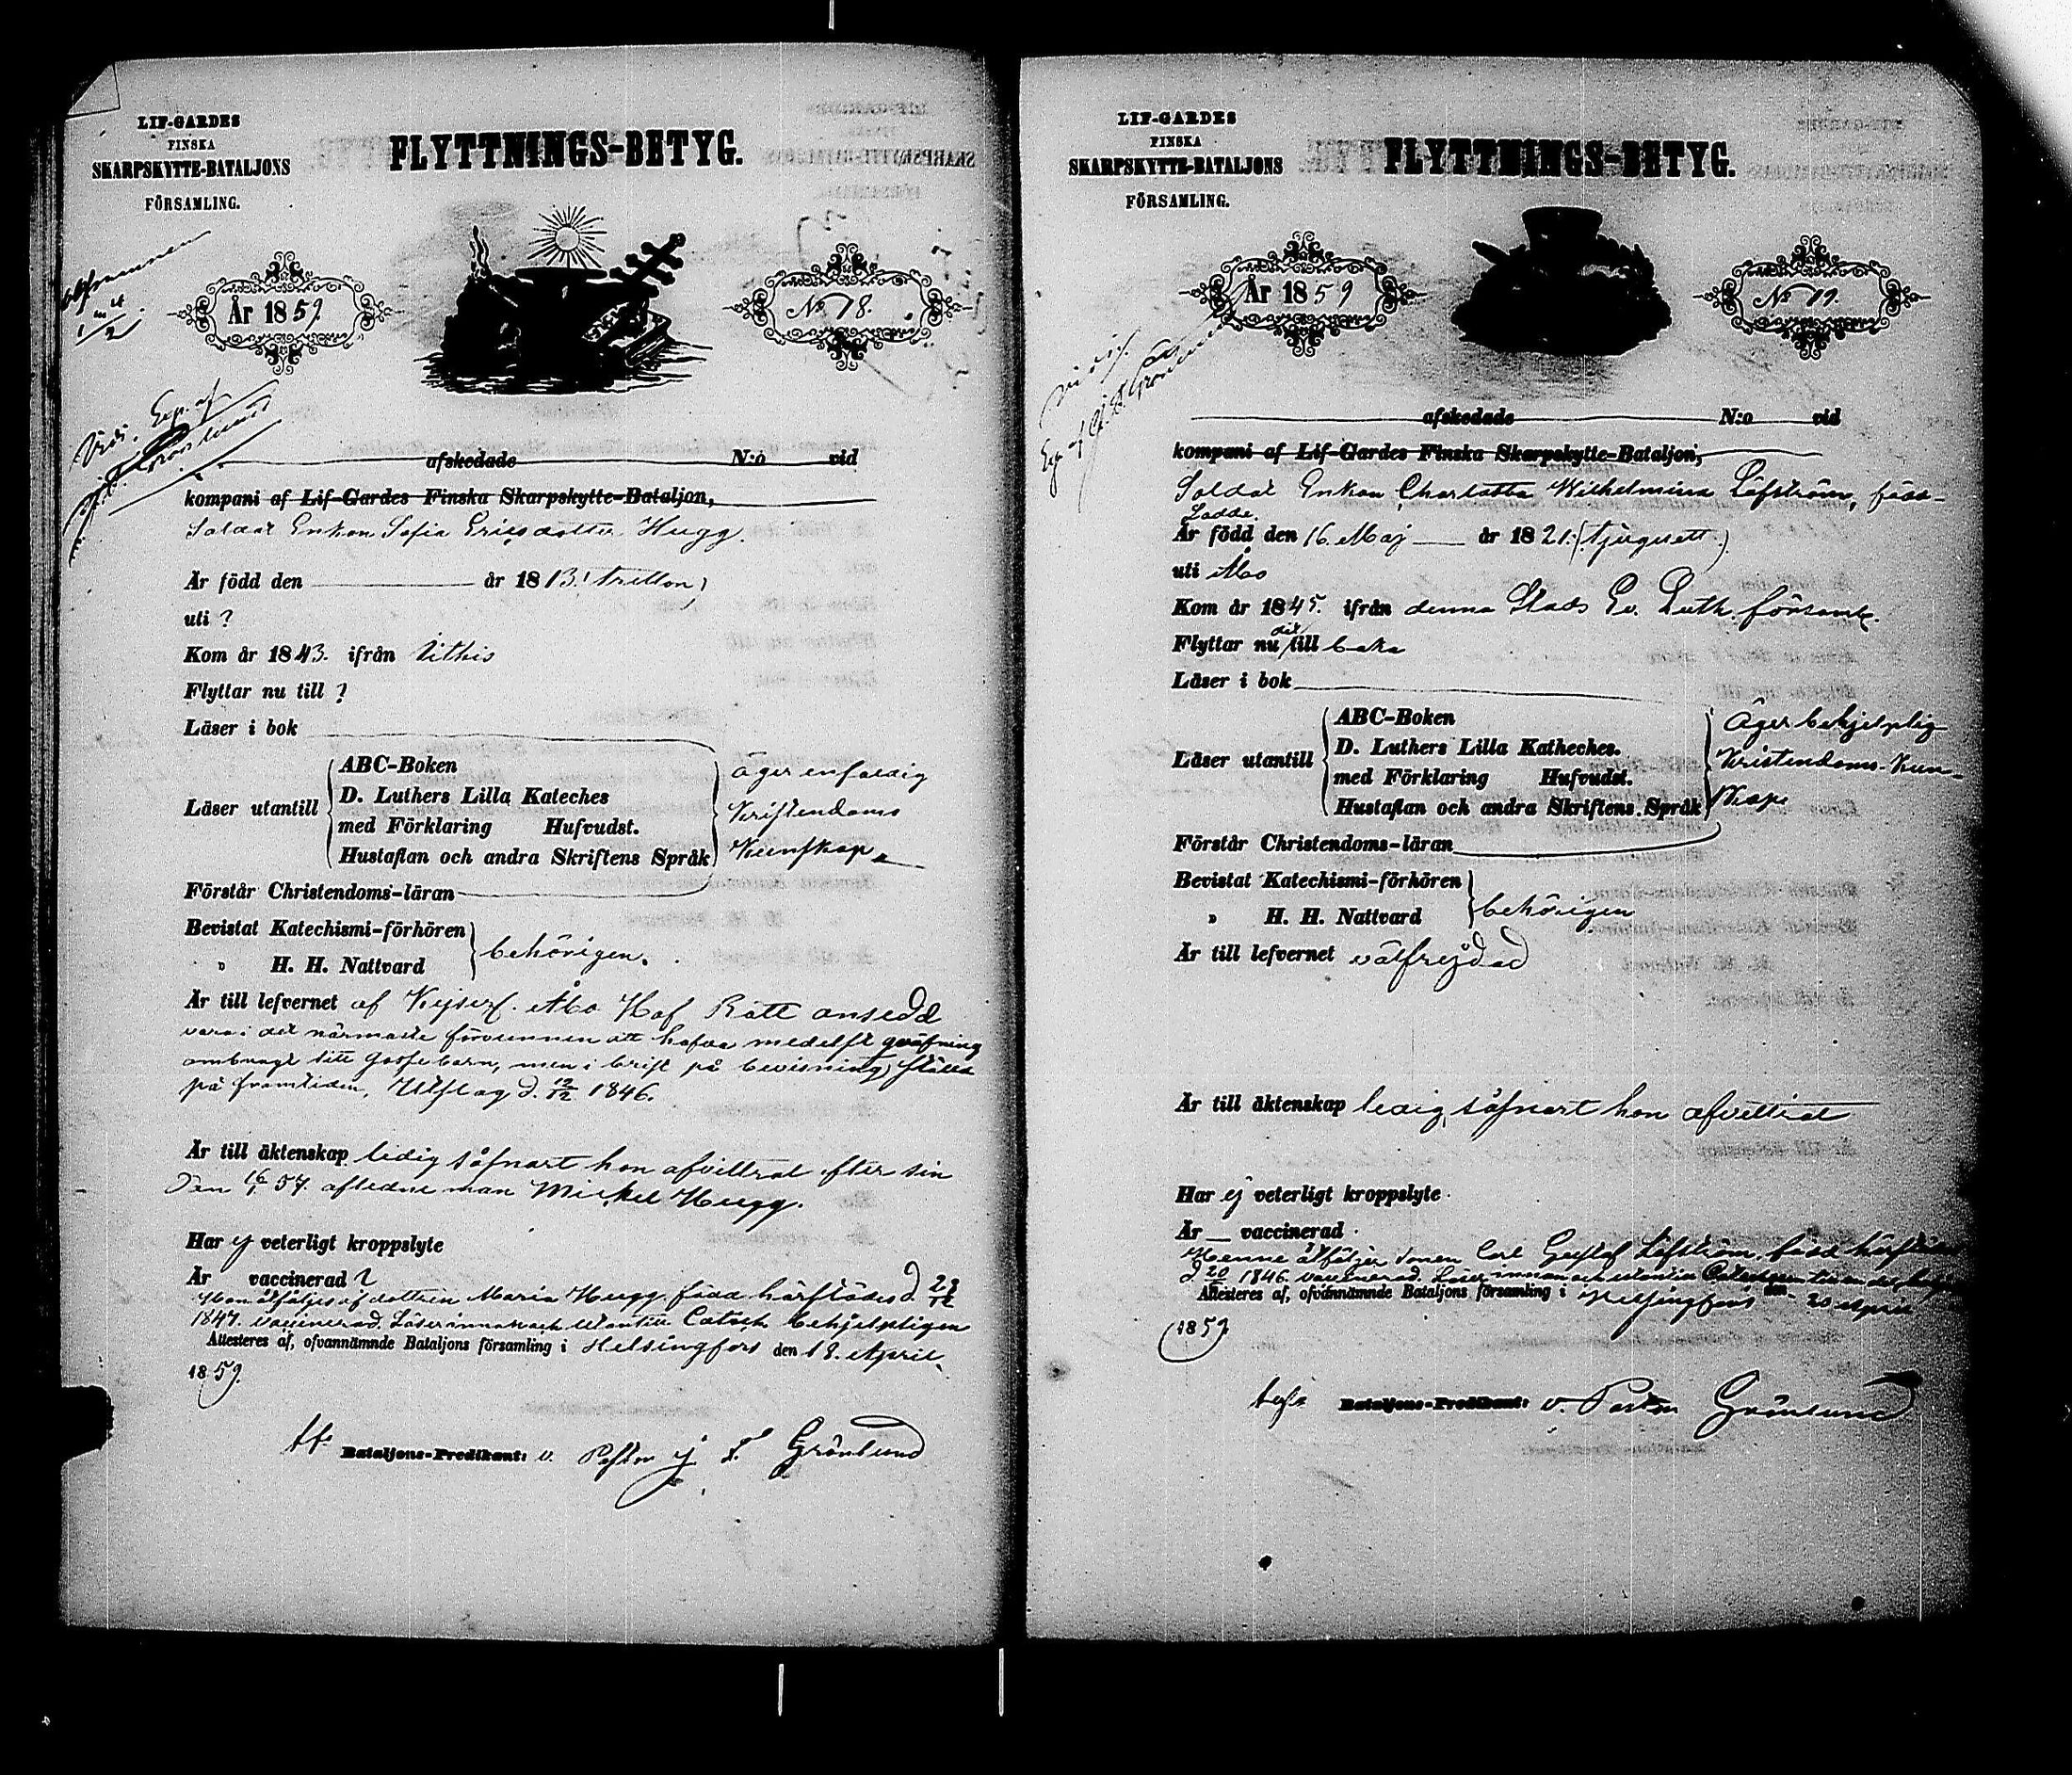 LIF-GARDES
FINSKA
SKARPSKYTTE-BATALJONS
FÖRSAMLING.
FLYTTNINGS-BETYG.
År 1859.
No 18.
Exp. af
afskedade N:o vid
kompani af Lif-Gardes Finska Skarpskytte-Bataljon,
Soldat Enkan Sofia Ericsdotter Hugg.
Är född den år 1813. (tretton)
uti ?
Kom år 1843. ifrån Vithis
Flyttar nu till ?
Läser i bok
Läser utantill
ABC-Boken
D. Luthers Lilla Kateches
med Förklaring Hufvudst.
Hustaflan och andra Skriftens Språk
äger enfaldig
Kristendoms
Kunskap
Förstår Christendoms-läran
Bevistat Katechismi-förhören
" H. H. Nattvard
behörigen.
Är till lefvernet af Kejserl. Åbo Hof Rätt ansedd
vara i det närmaste förvunnen att hafva medelst qväfning
ombragt sitt gossebarn, men i brist på bevisning ställd
på framtiden, Utslag d. 12/12 1846.
Är till äktenskap ledig såframt hon afvittrat efter sin
den 16/1 57. aflidne man Mickel Hugg.
Har ej veterligt kroppslyte
Är vaccinerad ?
Hon åtföljes af dottren Maria Hugg, född härstädes d. 28/12
1847. vaccinerad. Läser innan och utantill Catech. behjelpligen
Attesteres af, ofvannämnde Bataljons församling i Helsingfors den 18. April
1859.
Bataljons-Predikant: v. Pastor J. F. Grönlund
LIF-GARDES
FINSKA
SKARPSKYTTE-BATALJONS
FÖRSAMLING.
FLYTTNINGS-BETYG.
År 1859
No 19.
Exp. af
afskedade N:o vid
kompani af Lif-Gardes Finska Skarpskytte-Bataljon,
Soldat Enkan Charlotta Wilhelmina Löfström, född
Ladde.
Är född den 16. Maj år 1821. (tjuguett)
uti Åbo
Kom år 1845. ifrån denna Stads Ev. Luth. församl.
Flyttar nu dit till baka
Läser i bok
Läser utantill
ABC-Boken
D. Luthers Lilla Katheches.
med Förklaring Hufvudst.
Hustaflan och andra Skriftens Språk
Äger behjelplig
Kristendoms-Kun-
skap
Förstår Christendoms-läran
Bevistat Katechismi-förhören
" H. H. Nattvard
behörigen
Är till lefvernet välfrejdad
Är till äktenskap ledig, såframt hon afvittrat
Har ej veterligt kroppslyte
Är vaccinerad
Henne åtföljer sonen Carl Gustaf Löfström, född härstädes
d. 20 1846. vaccinerad. Läser innan och utantill
Attesteres af, ofvannämnde Bataljons församling i Helsingfors den 20 April
1859.
Bataljons-Predikant: v. Pastor Grönlund